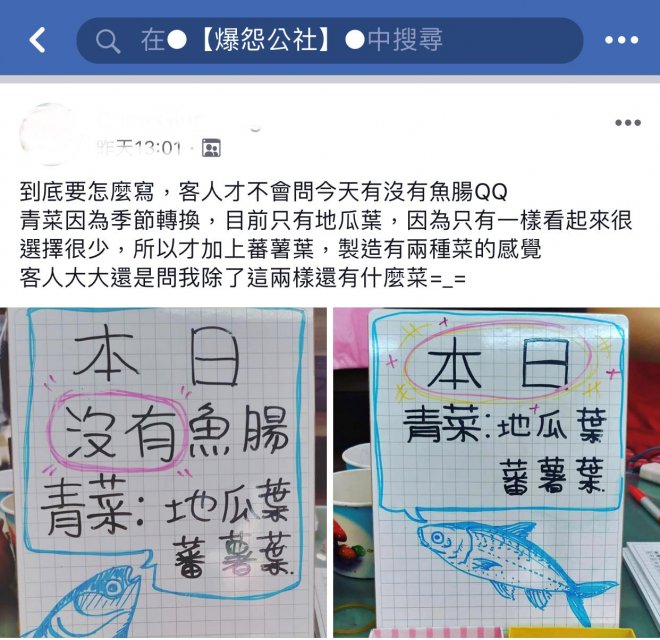 在●【爆怨公社】●中搜尋
昨天13:01
到底要怎麼寫，客人才不會問今天有沒有魚腸QQ
青菜因為季節轉換，目前只有地瓜葉，因為只有一樣看起來很
選擇很少，所以才加上蕃薯葉，製造有兩種菜的感覺
客人大大還是問我除了這兩樣還有什麼菜=_=
本日
沒有魚腸
青菜：地瓜葉
蕃薯葉.
本日
青菜：地瓜葉
蕃薯葉.